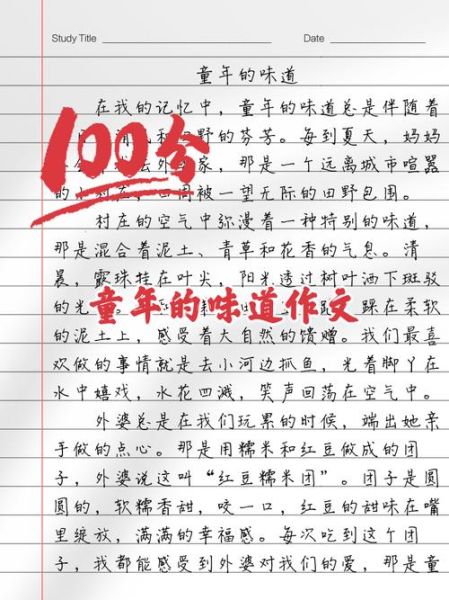 Study Title Date
童年的味道
在我的记忆中，童年的味道总是伴随着
100分
和田野的芬芳。每到夏天，妈妈
去外婆家，那是一个远离城市喧嚣
的小村庄，四周被一望无际的田野包围。
村庄的空气中弥漫着一种特别的味道，
那是混合着泥土、青草和花香的气息。清
晨，露珠挂在叶尖，阳光透过树叶洒下斑驳
的光 踩在柔软
童年的味道作文
的泥土上，感受着大自然的馈赠。我们最喜
欢做的事情就是去小河边抓鱼，光着脚丫在
水中嬉戏，水花四溅，笑声回荡在空气中。
外婆总是在我们玩累的时候，端出她亲
手做的点心。那是用糯米和红豆做成的团
子，外婆说这叫“红豆糯米团”。团子是圆
圆的，软糯香甜，咬一口，红豆的甜味在嘴
里绽放，满满的幸福感。每次吃到这个团
子，我都能感受到外婆对我们的爱，那是童